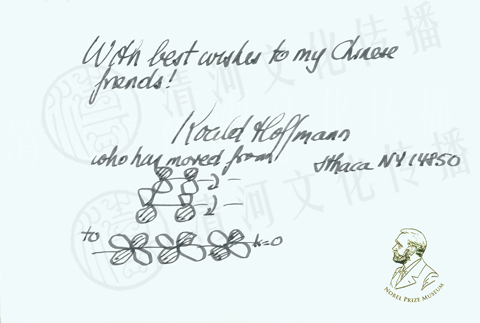 With best wishes to my Chinese
friends!
Roald Hoffmann
who has moved from
Ithaca NY 14850
to
k=0
NOBEL PRIZE MUSEUM
清河文化传播
清河文化传播